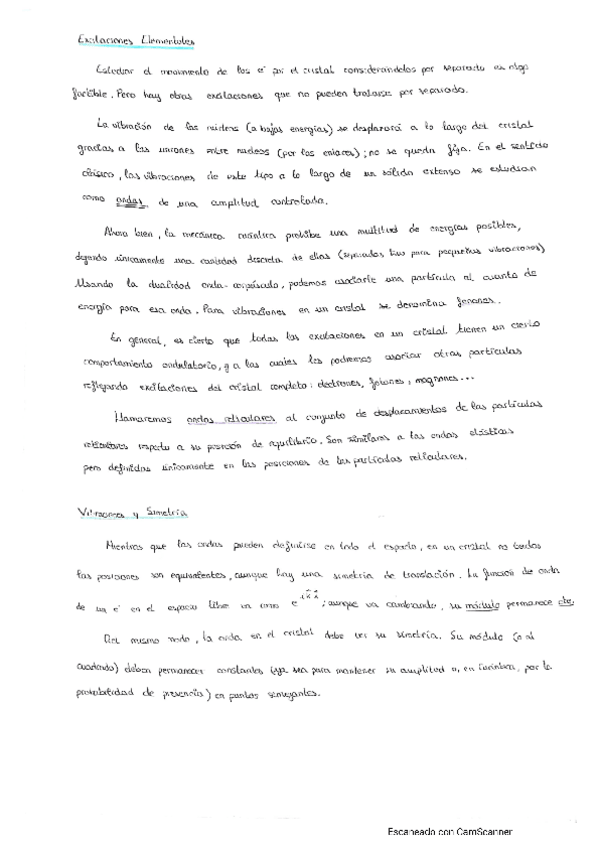 Excitaciones Elementales
Estudiar el movimiento de los e⁻ por el cristal considerándolos por separado es algo
factible. Pero hay otras excitaciones que no pueden tratarse por separado.
La vibración de los núcleos (a bajas energías) se desplazará a lo largo del cristal
gracias a las uniones entre núcleos (por los enlaces); no se queda fija. En el sentido
clásico, las vibraciones de este tipo a lo largo de un sólido extenso se estudian
como ondas de una amplitud controlada.
Ahora bien, la mecánica cuántica prohíbe una multitud de energías posibles,
dejando únicamente una cantidad discreta de ellas (separadas ħω para pequeñas vibraciones)
Usando la dualidad onda-corpúsculo, podemos asociarle una partícula al cuanto de
energía para esa onda. Para vibraciones en un cristal se denomina fonones.
En general, es cierto que todas las excitaciones en un cristal tienen un cierto
comportamiento ondulatorio, y a las cuales les podremos asociar otras partículas
reflejando excitaciones del cristal completo: electrones, fonones, magnones...
Llamaremos ondas reticulares al conjunto de desplazamientos de las partículas
reticulares respecto a su posición de equilibrio. Son similares a las ondas elásticas
pero definidas únicamente en las posiciones de las partículas reticulares.
Vibraciones y Simetría
Mientras que las ondas pueden definirse en todo el espacio, en un cristal no todas
las posiciones son equivalentes, aunque hay una simetría de translación. La función de onda
de un e⁻ en el espacio libre va como e^{i k⃗ x⃗}; aunque va cambiando, su módulo permanece cte.
Del mismo modo, la onda en el cristal debe ver su simetría. Su módulo (o al
cuadrado) deben permanecer constantes (ya sea para mantener su amplitud o, en cuántica, por la
probabilidad de presencia) en puntos semejantes.
Escaneado con CamScanner